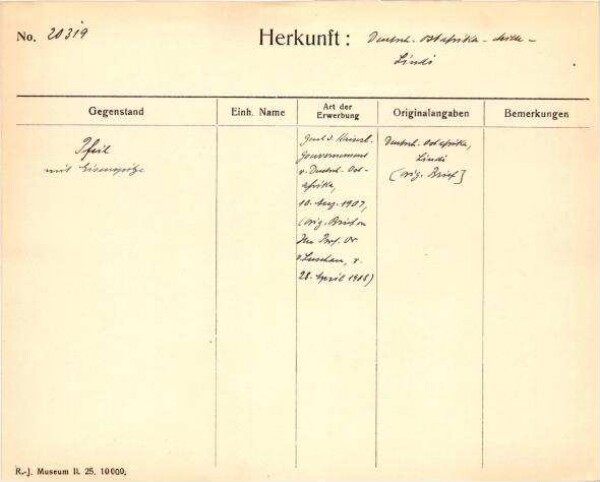 No. 20319
Herkunft: Deutsch. Ostafrika -
Lindi
Gegenstand
Einh. Name
Art der
Erwerbung
Originalangaben
Bemerkungen
Pfeil
mit Eisenspitze
Gouvernement
v. Deutsch. Ost-
afrika,
10. Aug. 1907,
(orig. Brief an
Herr Prof. Dr
v. Luschan, v.
28. April 1908)
Deutsch. Ostafrika,
Lindi
(orig. Brief]
R.-J. Museum II. 25. 10000.